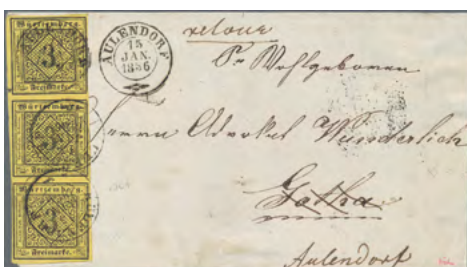 Württemberg.
3.
Dreimarke.
Württemberg.
3.
Dreimarke.
Württemberg.
3.
Dreimarke.
AULENDORF
15
JAN.
1856
retour
Sr Wohlgeboren
Herrn Advokat Wunderlich
Gotha
Aulendorf